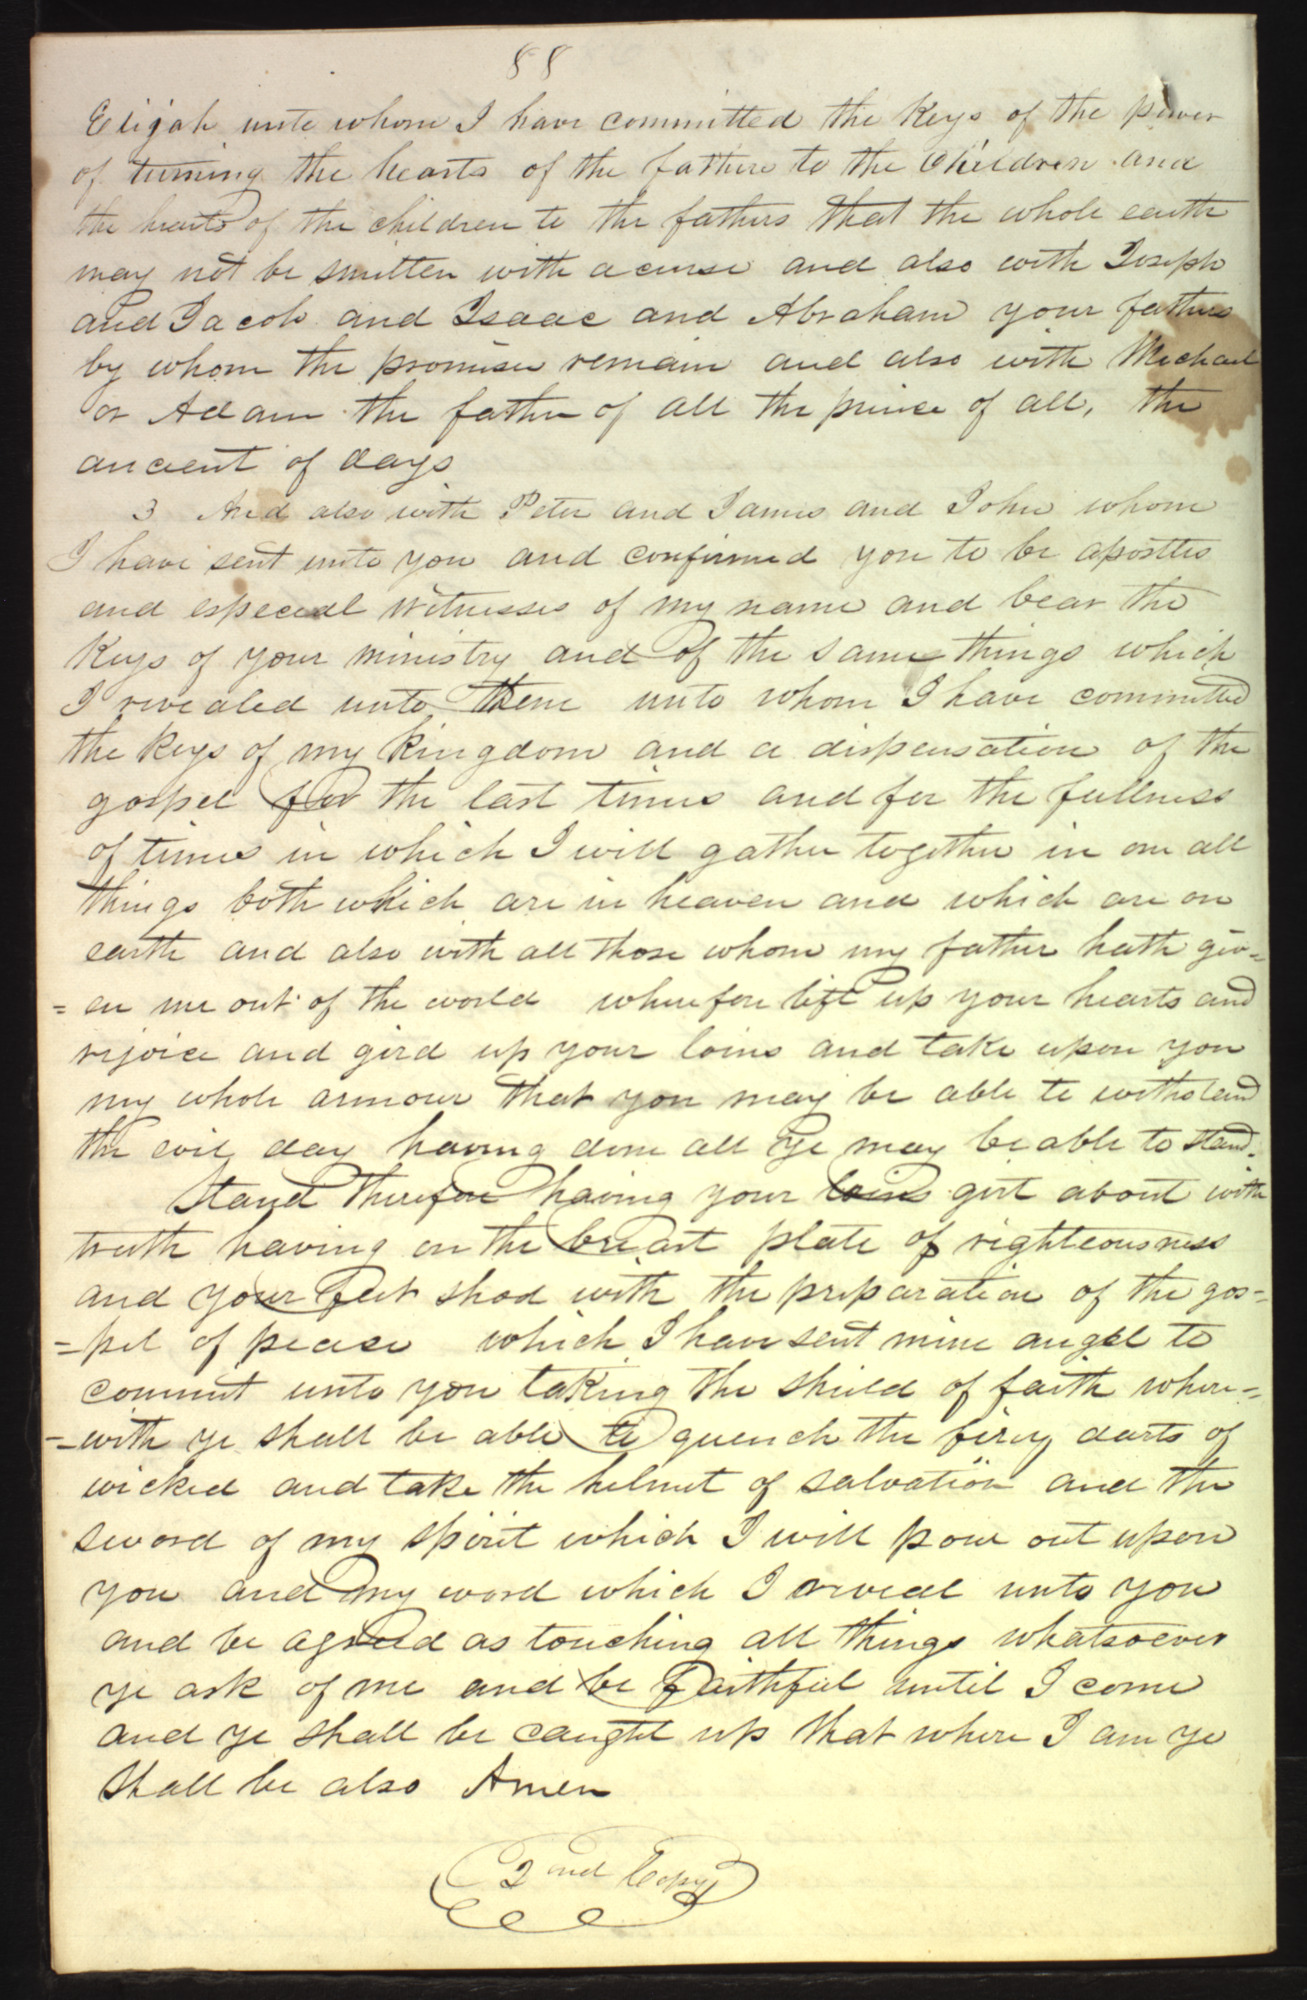 88
Elijah unto whom I have committed the Keys of the power
of turning the hearts of the fathers to the Children and
the hearts of the children to the fathers that the whole earth
may not be smitten with a curse and also with Joseph
and Jacob and Isaac and Abraham your fathers
by whom the promises remain and also with Michael
or Adam the father of all the prince of all, the
ancient of days
3 And also with Peter and James and John whom
I have sent unto you and confirmed you to be apostles
and especial witnesses of my name and bear the
Keys of your ministry and of the same things which
I revealed unto them unto whom I have committed
the keys of my Kingdom and a dispensation of the
gospel for the last times and for the fullness
of times in which I will gather together in one all
things both which are in heaven and which are on
earth and also with all those whom my father hath giv-
=en me out of the world wherefore lift up your hearts and
rejoice and gird up your loins and take upon you
my whole armour that you may be able to withstand
the evil day having done all ye may be able to stand.
Stand therefore having your loins girt about with
truth having on the breast plate of righteousness
and your feet shod with the preparation of the gos=
=pel of peace which I have sent mine angel to
commit unto you taking the shield of faith where=
=with ye shall be able to quench the firey darts of
wicked and take the helmet of salvation and the
sword of my spirit which I will pour out upon
you and my word which I reveal unto you
and be agreed as touching all things whatsoever
ye ask of me and be faithful until I come
and ye shall be caught up that where I am ye
shall be also Amen
2nd Copy